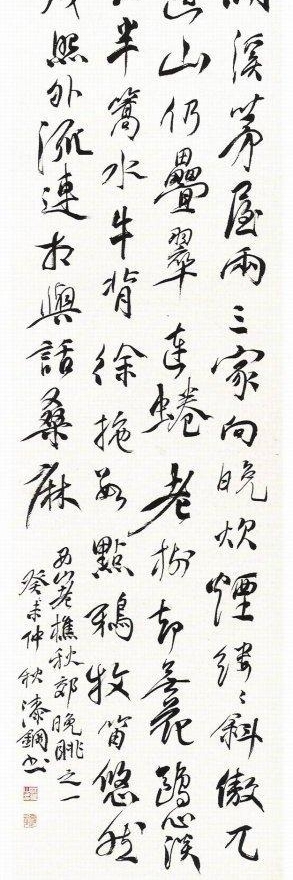 溪茅屋兩三家向晚炊煙縷〻斜傲兀
山仍疊翠連蜷老樹却無花鷗心淡
半篙水牛背徐拖數點鴉牧笛悠然
照外流連相與話桑麻
老樵秋郊晚眺之一
癸未仲秋漆鋼書